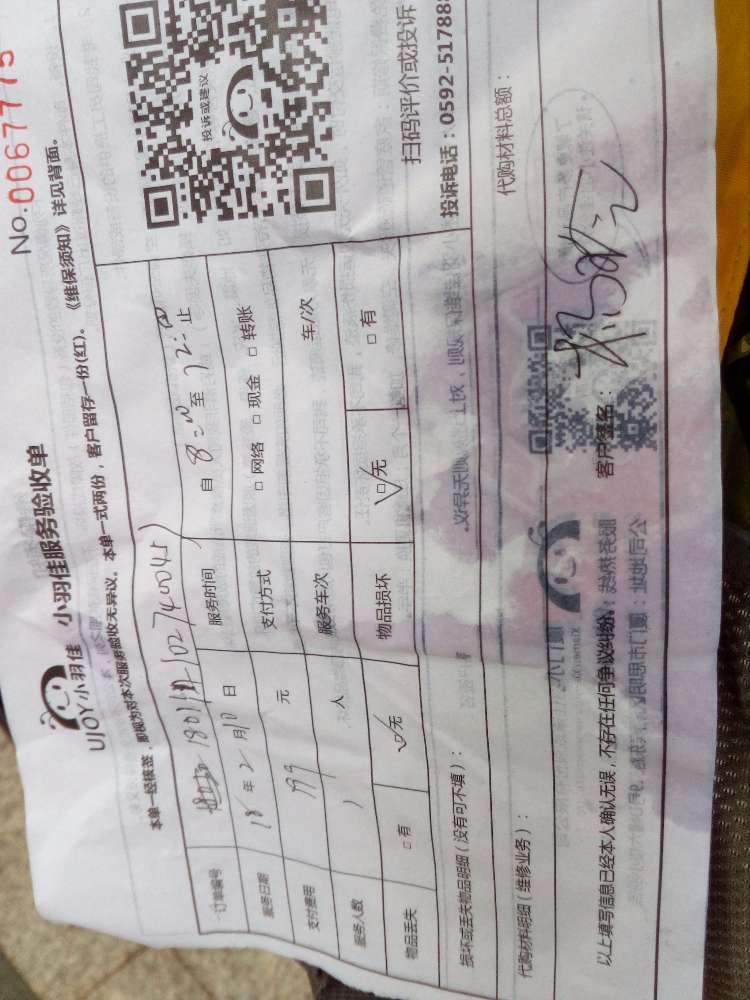 No.0067775
UJOY小羽佳 小羽佳服务验收单
本单一经核签，即视为对本次服务验收无异议。本单一式两份，客户留存一份(红)。《维保须知》详见背面。
订单编号
服务日期 18年2月10日 服务时间 自8:00至12:00止
支付费用 199元 支付方式 □网络 □现金 □转账
服务人数 1人 服务车次 车/次
物品丢失 □有 ☑无 物品损坏 ☑无 □有
损坏或丢失物品明细（没有可不填）：
代购材料明细（维修业务）： 代购材料总额：
以上填写信息已经本人确认无误，不存在任何争议纠纷。 客户签名：
投诉或建议
扫码评价或投诉
投诉电话：0592-51788